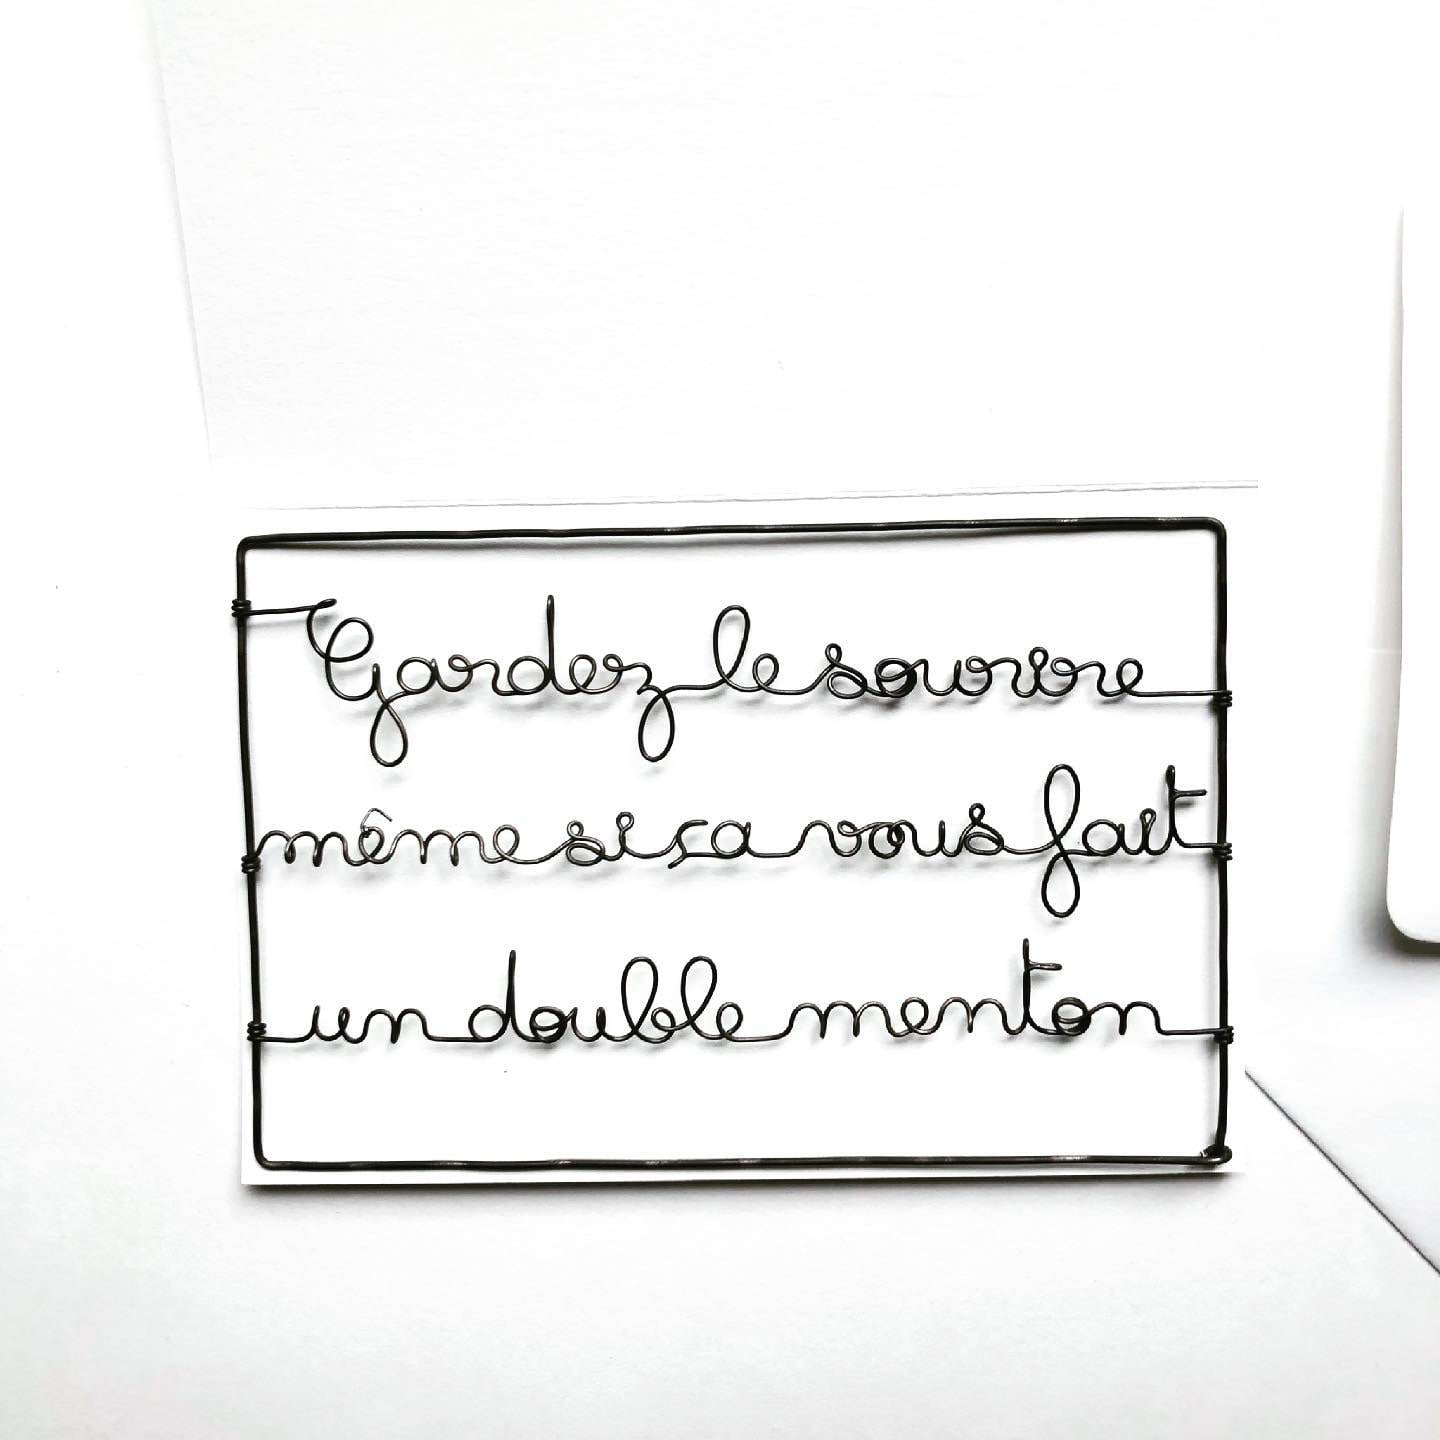 Gardez le sourire
même si ça vous fait
un double menton